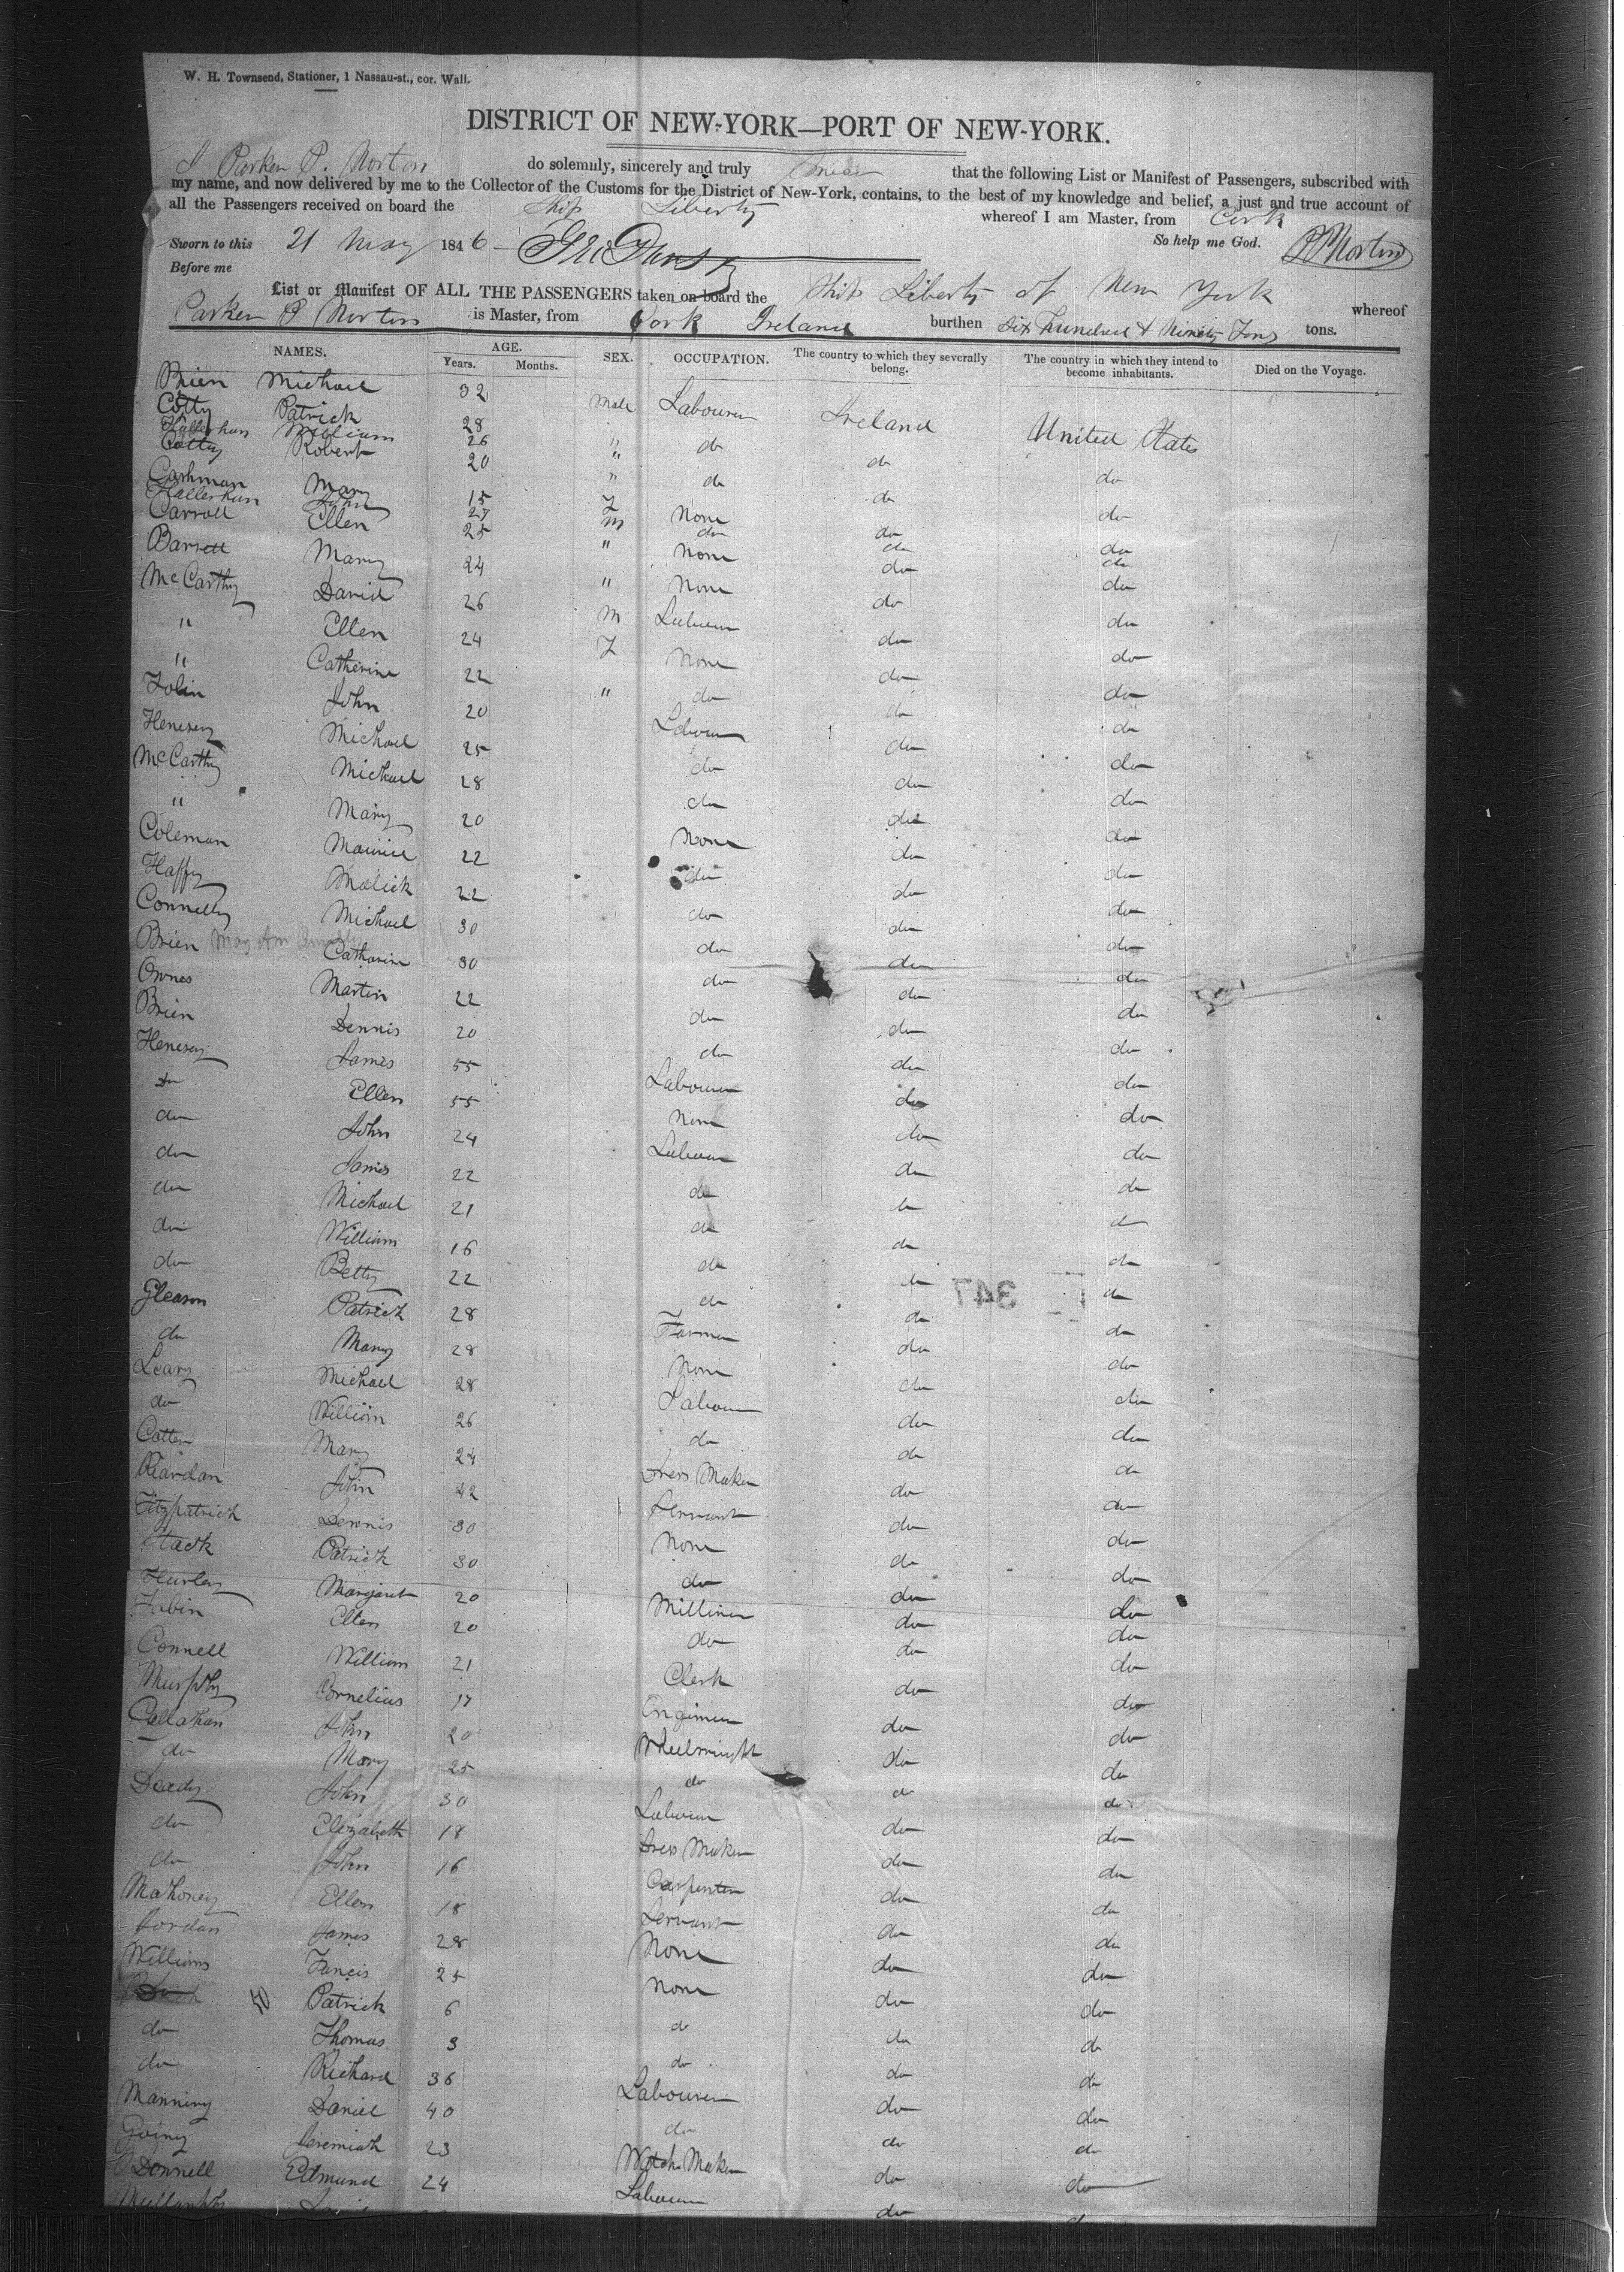 W. H. Townsend, Stationer, 1 Nassau-st., cor. Wall.
DISTRICT OF NEW-YORK—PORT OF NEW-YORK.
I Parker P. Norton do solemnly, sincerely and truly swear that the following List or Manifest of Passengers, subscribed with
my name, and now delivered by me to the Collector of the Customs for the District of New-York, contains, to the best of my knowledge and belief, a just and true account of
all the Passengers received on board the Ship Liberty whereof I am Master, from Cork
Sworn to this 21 May 1846 So help me God. PPNorton
Before me
List or Manifest OF ALL THE PASSENGERS taken on board the Ship Liberty of New York whereof
Parker P Norton is Master, from Cork Ireland burthen Six Hundred & Ninety Tons tons.
NAMES. AGE. Years. Months. SEX. OCCUPATION. The country to which they severally belong. The country in which they intend to become inhabitants. Died on the Voyage.
Brien Michael 32 Male Labourer Ireland United States
Cotty Patrick 28
Hallerhan William 26 " do do do
Cotty Robert 20 "
Cashman Mary 15 F None do do
Hallerhan John 27 M do do do
Carroll Ellen 25 " None do do
Barrett Mary 24 " None do do
McCarthy David 26 M Labourer do do
" Ellen 24 F None do do
" Catherine 22 " do do do
Tobin John 20 Labourer do do
Henesey Michael 25 do do do
McCarthy Michael 28 do do do
" Mary 20 None do do
Coleman Maurice 22 do do do
Haffy Malick 22 do do do
Connelly Michael 30 do do do
Brien Mary Ann Catharine 30 do do do
Ownes Martin 22 do do do
Brien Dennis 20 do do do
Henesey James 55 Labourer do do
do Ellen 55 None do do
do John 24 Labourer do do
do James 22 do do do
do Michael 21 do do do
do William 16 do do do
do Betty 22 do do do
347
Gleason Patrick 28 Farmer do do
do Mary 28 None do do
Leary Michael 28 Labourer do do
do William 26 do do do
Cotter Mary 24 Dress Maker do do
Riardan John 42 Servant do do
Fitzpatrick Dennis 30 None do do
Stack Patrick 30 do do do
Hurley Margaret 20 Milliner do do
Tobin Ellen 20 do do do
Connell William 21 Clerk do do
Murphy Cornelius 17 Engineer do do
Callahan John 20 Wheelwright do do
do Mary 25 do do do
Deady John 30 Labourer do do
do Elizabeth 18 Dress Maker do do
do John 16 Carpenter do do
Mahoney Ellen 18 Servant do do
Jordan James 28 None do do
Williams Francis 25 None do do
Patrick 6 do do do
do Thomas 3 do do do
do Richard 36 Labourer do do
Manning Daniel 40 do do do
Going Jeremiah 23 Watch Maker do do
O'Donnell Edmund 24 Labourer do do
do